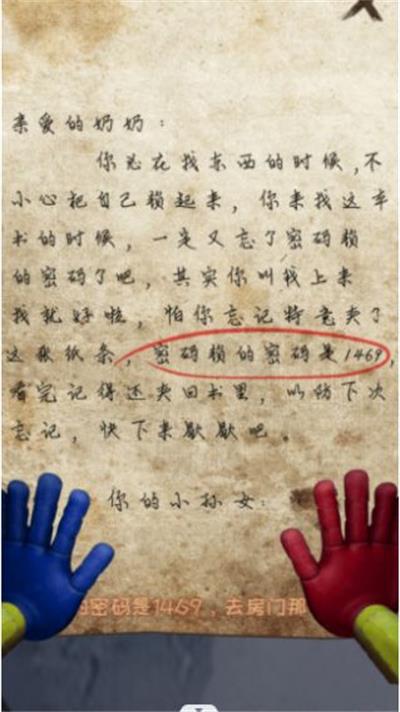 亲爱的奶奶：
你总在找东西的时候，不
小心把自己锁起来，你来找这本
书的时候，一定又忘了密码锁
的密码了吧，其实你叫我上来
找就好啦，怕你忘记特意夹了
这张纸条，密码锁的密码是1469，
看完记得还夹回书里，以防下次
忘记，快下来歇歇吧。
你的小孙女：
的密码是1469，去房门那